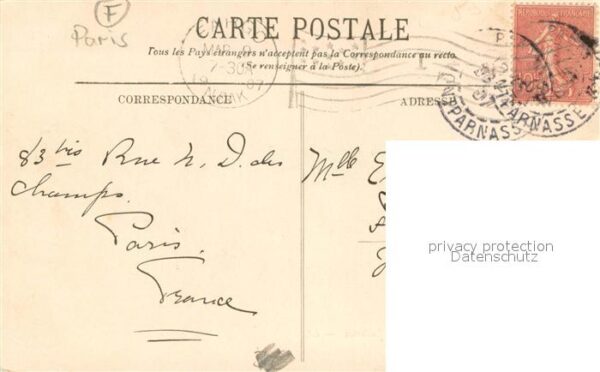 F
Paris
CARTE POSTALE
Tous les Pays étrangers n'acceptent pas la Correspondance au recto.
(Se renseigner à la Poste).
MAR 9
7-30A
97
N.O.&K
RÉPUBLIQUE FRANÇAISE
10c
PARNASSE
CORRESPONDANCE
ADRESSE
83 bis Rue N. D. des
Champs.
Paris.
France
Mlle E
privacy protection
Datenschutz